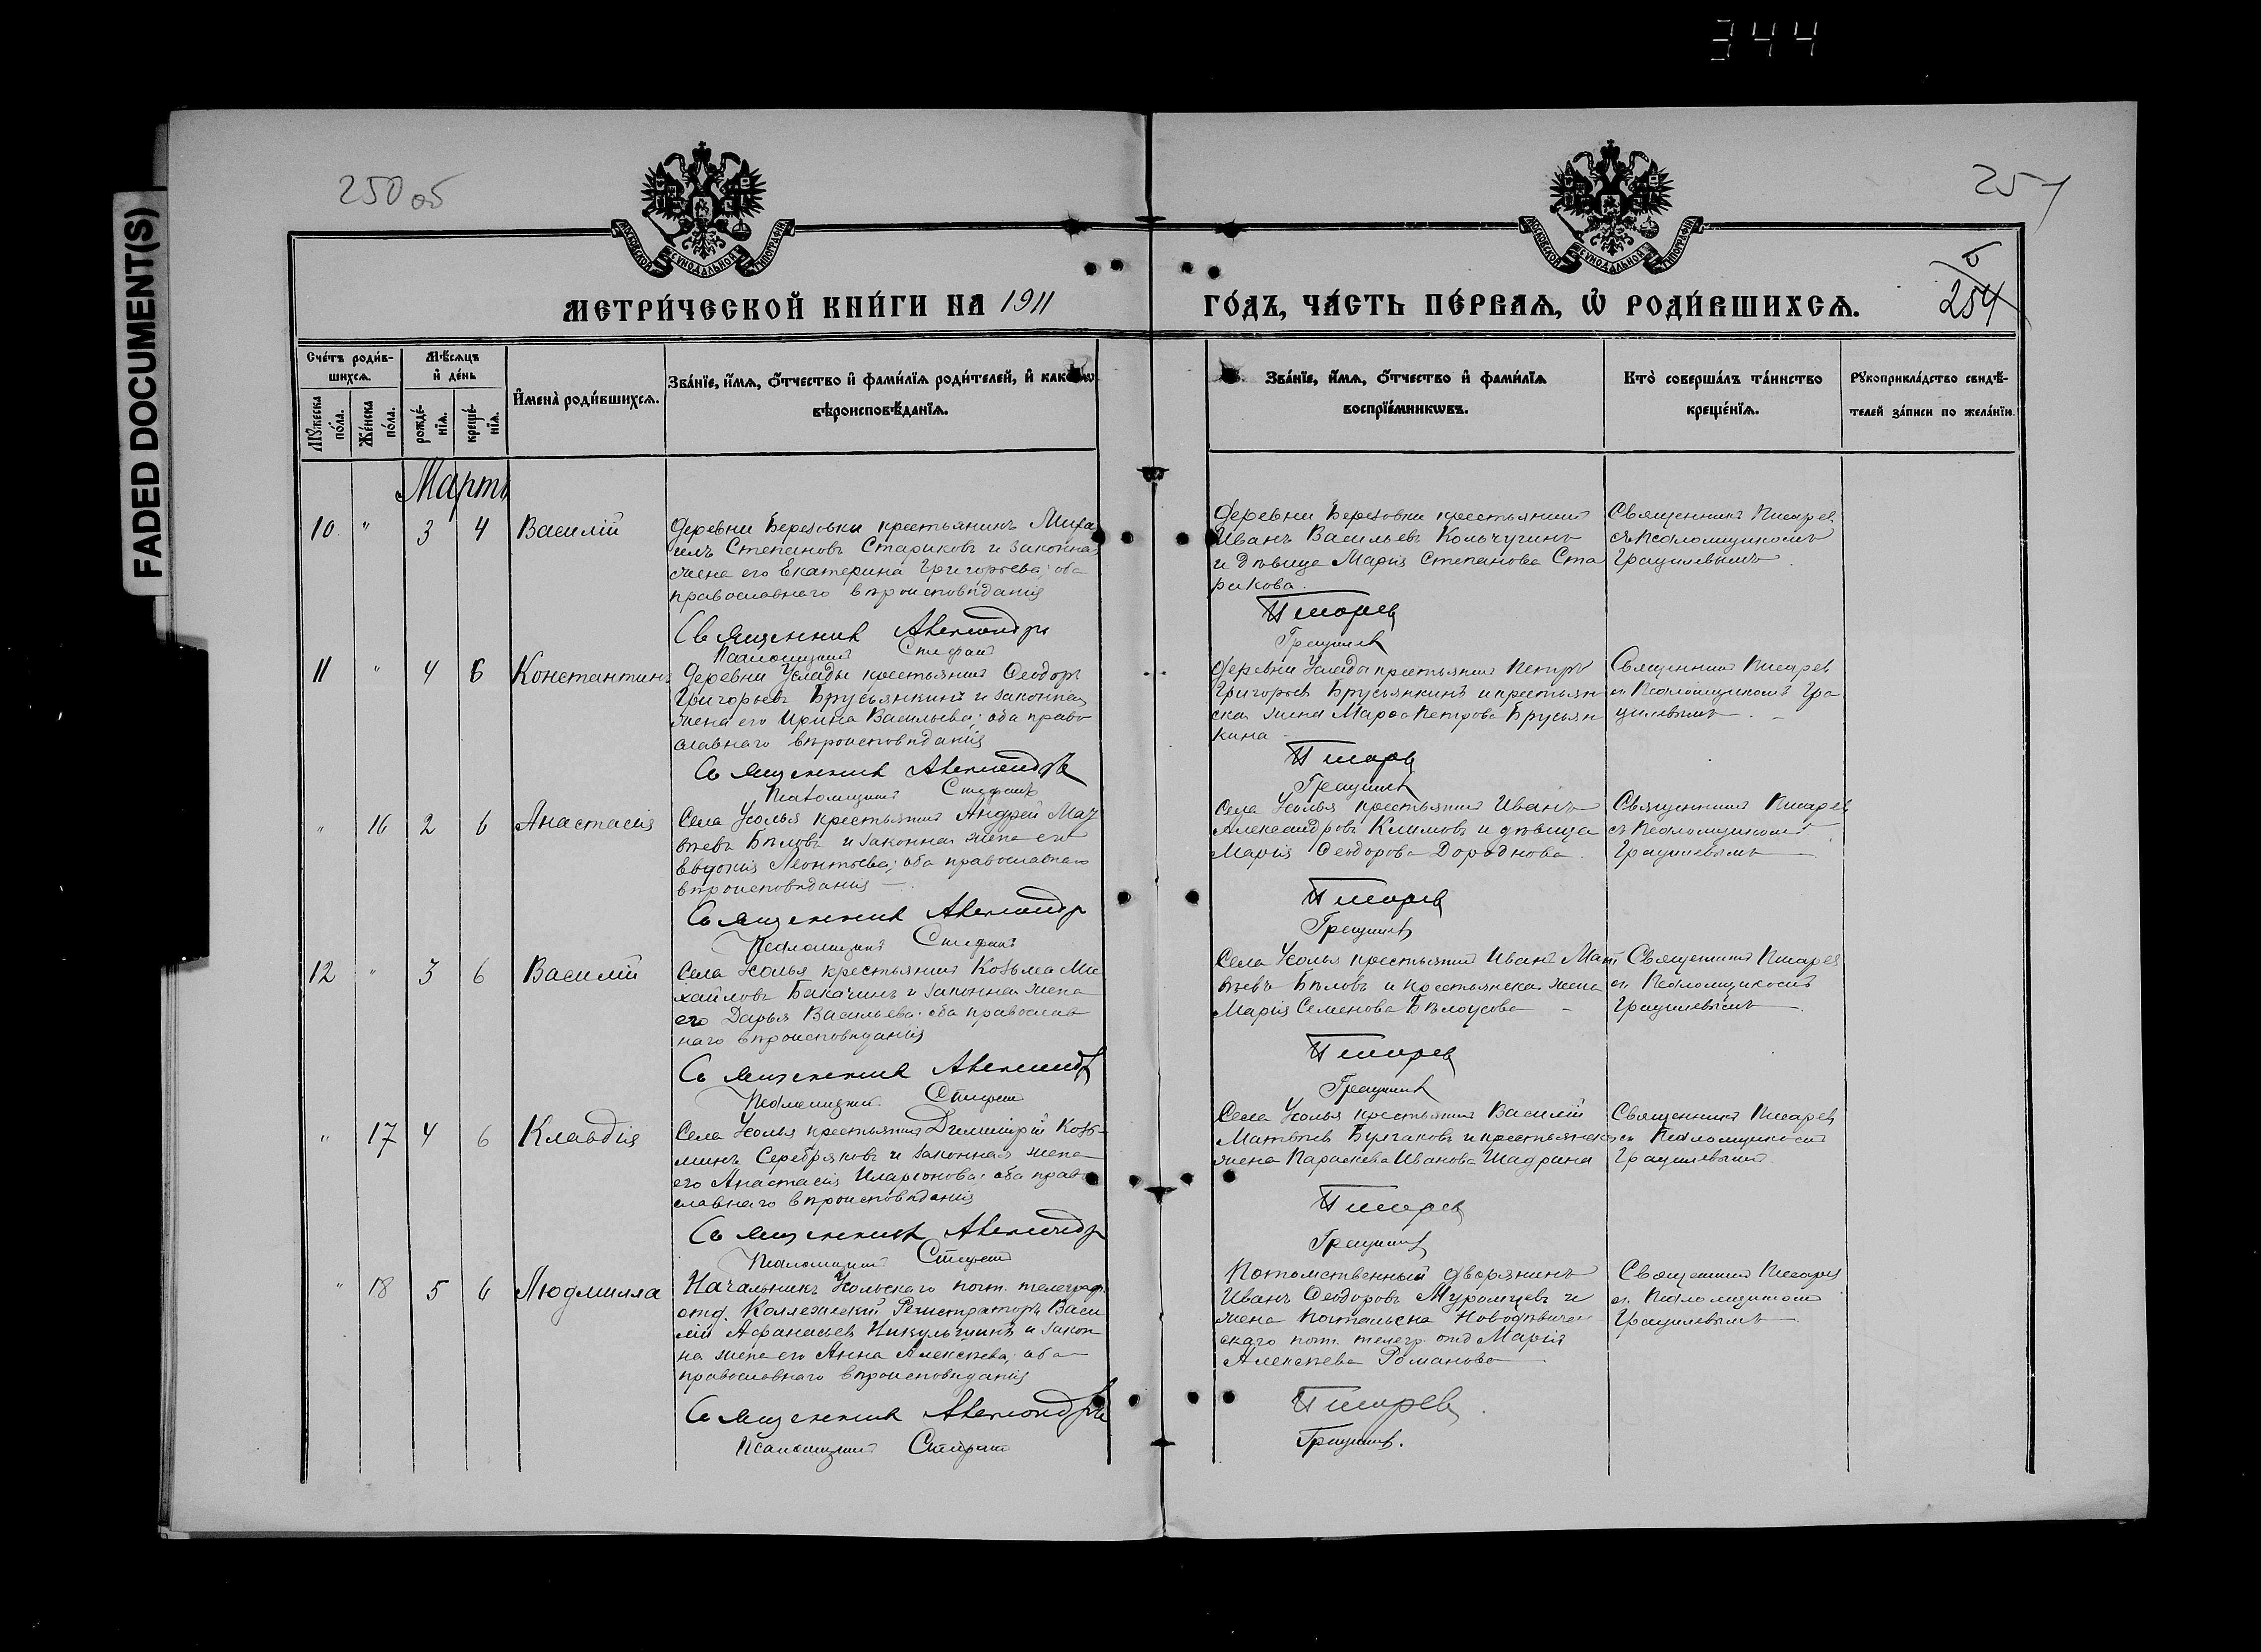 344
FADED DOCUMENT(S)
250 об
251
254
МОСКОВСКОЙ СѴНОДАЛЬНОЙ ТИПОГРАФІИ
МОСКОВСКОЙ СѴНОДАЛЬНОЙ ТИПОГРАФІИ
МЕТРИ́ЧЕСКОЙ КНИ́ГИ НА 1911
ГО́ДЪ, ЧА́СТЬ ПЕ́РВАѦ, Ѡ҆ РОДИ́ВШИХСѦ.
Сче́тъ роди́в-
шихсѧ.
Мѣ́сѧцъ
и҆ де́нь
Мꙋ́жеска по́ла.
Же́нска по́ла.
рожде́-
нїѧ.
креще́-
нїѧ.
И҆мена̀ роди́вшихсѧ.
Зва́нїе, и҆́мѧ, ѻ҆́тчество и҆ фами́лїѧ роди́телей, и҆ како́гѡ
вѣроисповѣ́данїѧ.
Зва́нїе, и҆́мѧ, ѻ҆́тчество и҆ фами́лїѧ
воспрїе́мникѡвъ.
Кто̀ соверша́лъ та́инство
креще́нїѧ.
Рꙋкоприкла́дство свидѣ́-
телей за́писи по жела́нїю.
Мартъ
10 " 3 4 Василій
Деревни Березовки крестьянинъ Миха
илъ Степановъ Стариковъ и законная
жена его Екатерина Григорьева; оба
православнаго вѣроисповѣданія
Священник Александръ
Псаломщикъ Стефанъ
Деревни Березовки крестьянинъ
Иванъ Васильевъ Кольчугинъ
и дѣвица Марія Степанова Ста
рикова.
Писарев
Грацилев
Священникъ Писарев
съ Псаломщикомъ
Грацилевымъ.
11 " 4 6 Константинъ
Деревни Услады крестьянинъ Ѳеодоръ
Григорьевъ Брусьянкинъ и законная
жена его Ирина Васильева; оба право
славнаго вѣроисповѣданія
Священник Александръ
Псаломщикъ Стефанъ
Деревни Услады крестьянинъ Петръ
Григорьевъ Брусьянкинъ и крестьян
ская жена Марѳа Петрова Брусьян
кина
Писарев
Грацилев
Священникъ Писарев
съ Псаломщикомъ Гра
цилевымъ.
" 16 2 6 Анастасія
Села Усолья крестьянинъ Андрей Мат
вѣевъ Бѣловъ и законная жена его
Евдокія Леонтьева; оба православнаго
вѣроисповѣданія
Священник Александр
Псаломщикъ Стефанъ
Села Усолья крестьянинъ Иванъ
Александровъ Климовъ и дѣвица
Марія Ѳеодорова Дороднова.
Писарев
Грацилев
Священникъ Писарев
съ Псаломщикомъ
Грацилевымъ
12 " 3 6 Василій
Села Усолья крестьянинъ Козьма Ми
хайловъ Бакачинъ и законная жена
его Дарья Васильева; оба православ
наго вѣроисповѣданія
Священник Александр
Псаломщикъ Стефанъ
Села Усолья крестьянинъ Иванъ Мат
вѣевъ Бѣловъ и крестьянская жена
Марія Семенова Бѣлоусова
Писарев
Грацилев
Священникъ Писарев
съ Псаломщикомъ
Грацилевымъ
" 17 4 6 Клавдія
Села Усолья крестьянинъ Димитрій Козь-
минъ Серебряковъ и законная жена
его Анастасія Иларіонова; оба право
славнаго вѣроисповѣданія
Священник Александр
Псаломщикъ Стефанъ
Села Усолья крестьянинъ Василій
Матвѣевъ Булгаковъ и крестьянская
жена Параскева Иванова Шадрина
Писарев
Грацилев
Священникъ Писарев
съ Псаломщикомъ
Грацилевымъ
" 18 5 6 Людмилла
Начальникъ Усольскаго почт. телеграф.
отд. Коллежскій Регистраторъ Васи
лій Аѳанасьевъ Никульшинъ и закон
на жена его Анна Алексѣева; оба
православнаго вѣроисповѣданія
Священник Александръ
Псаломщикъ Стефанъ
Потомственный дворянинъ
Иванъ Ѳеодоровъ Муромцевъ и
жена почтальона Новодѣвичен
скаго почт. телегр. отд Марія
Алексѣева Романова
Писарев
Грацилев.
Священникъ Писарев
съ Псаломщикомъ
Грацилевымъ